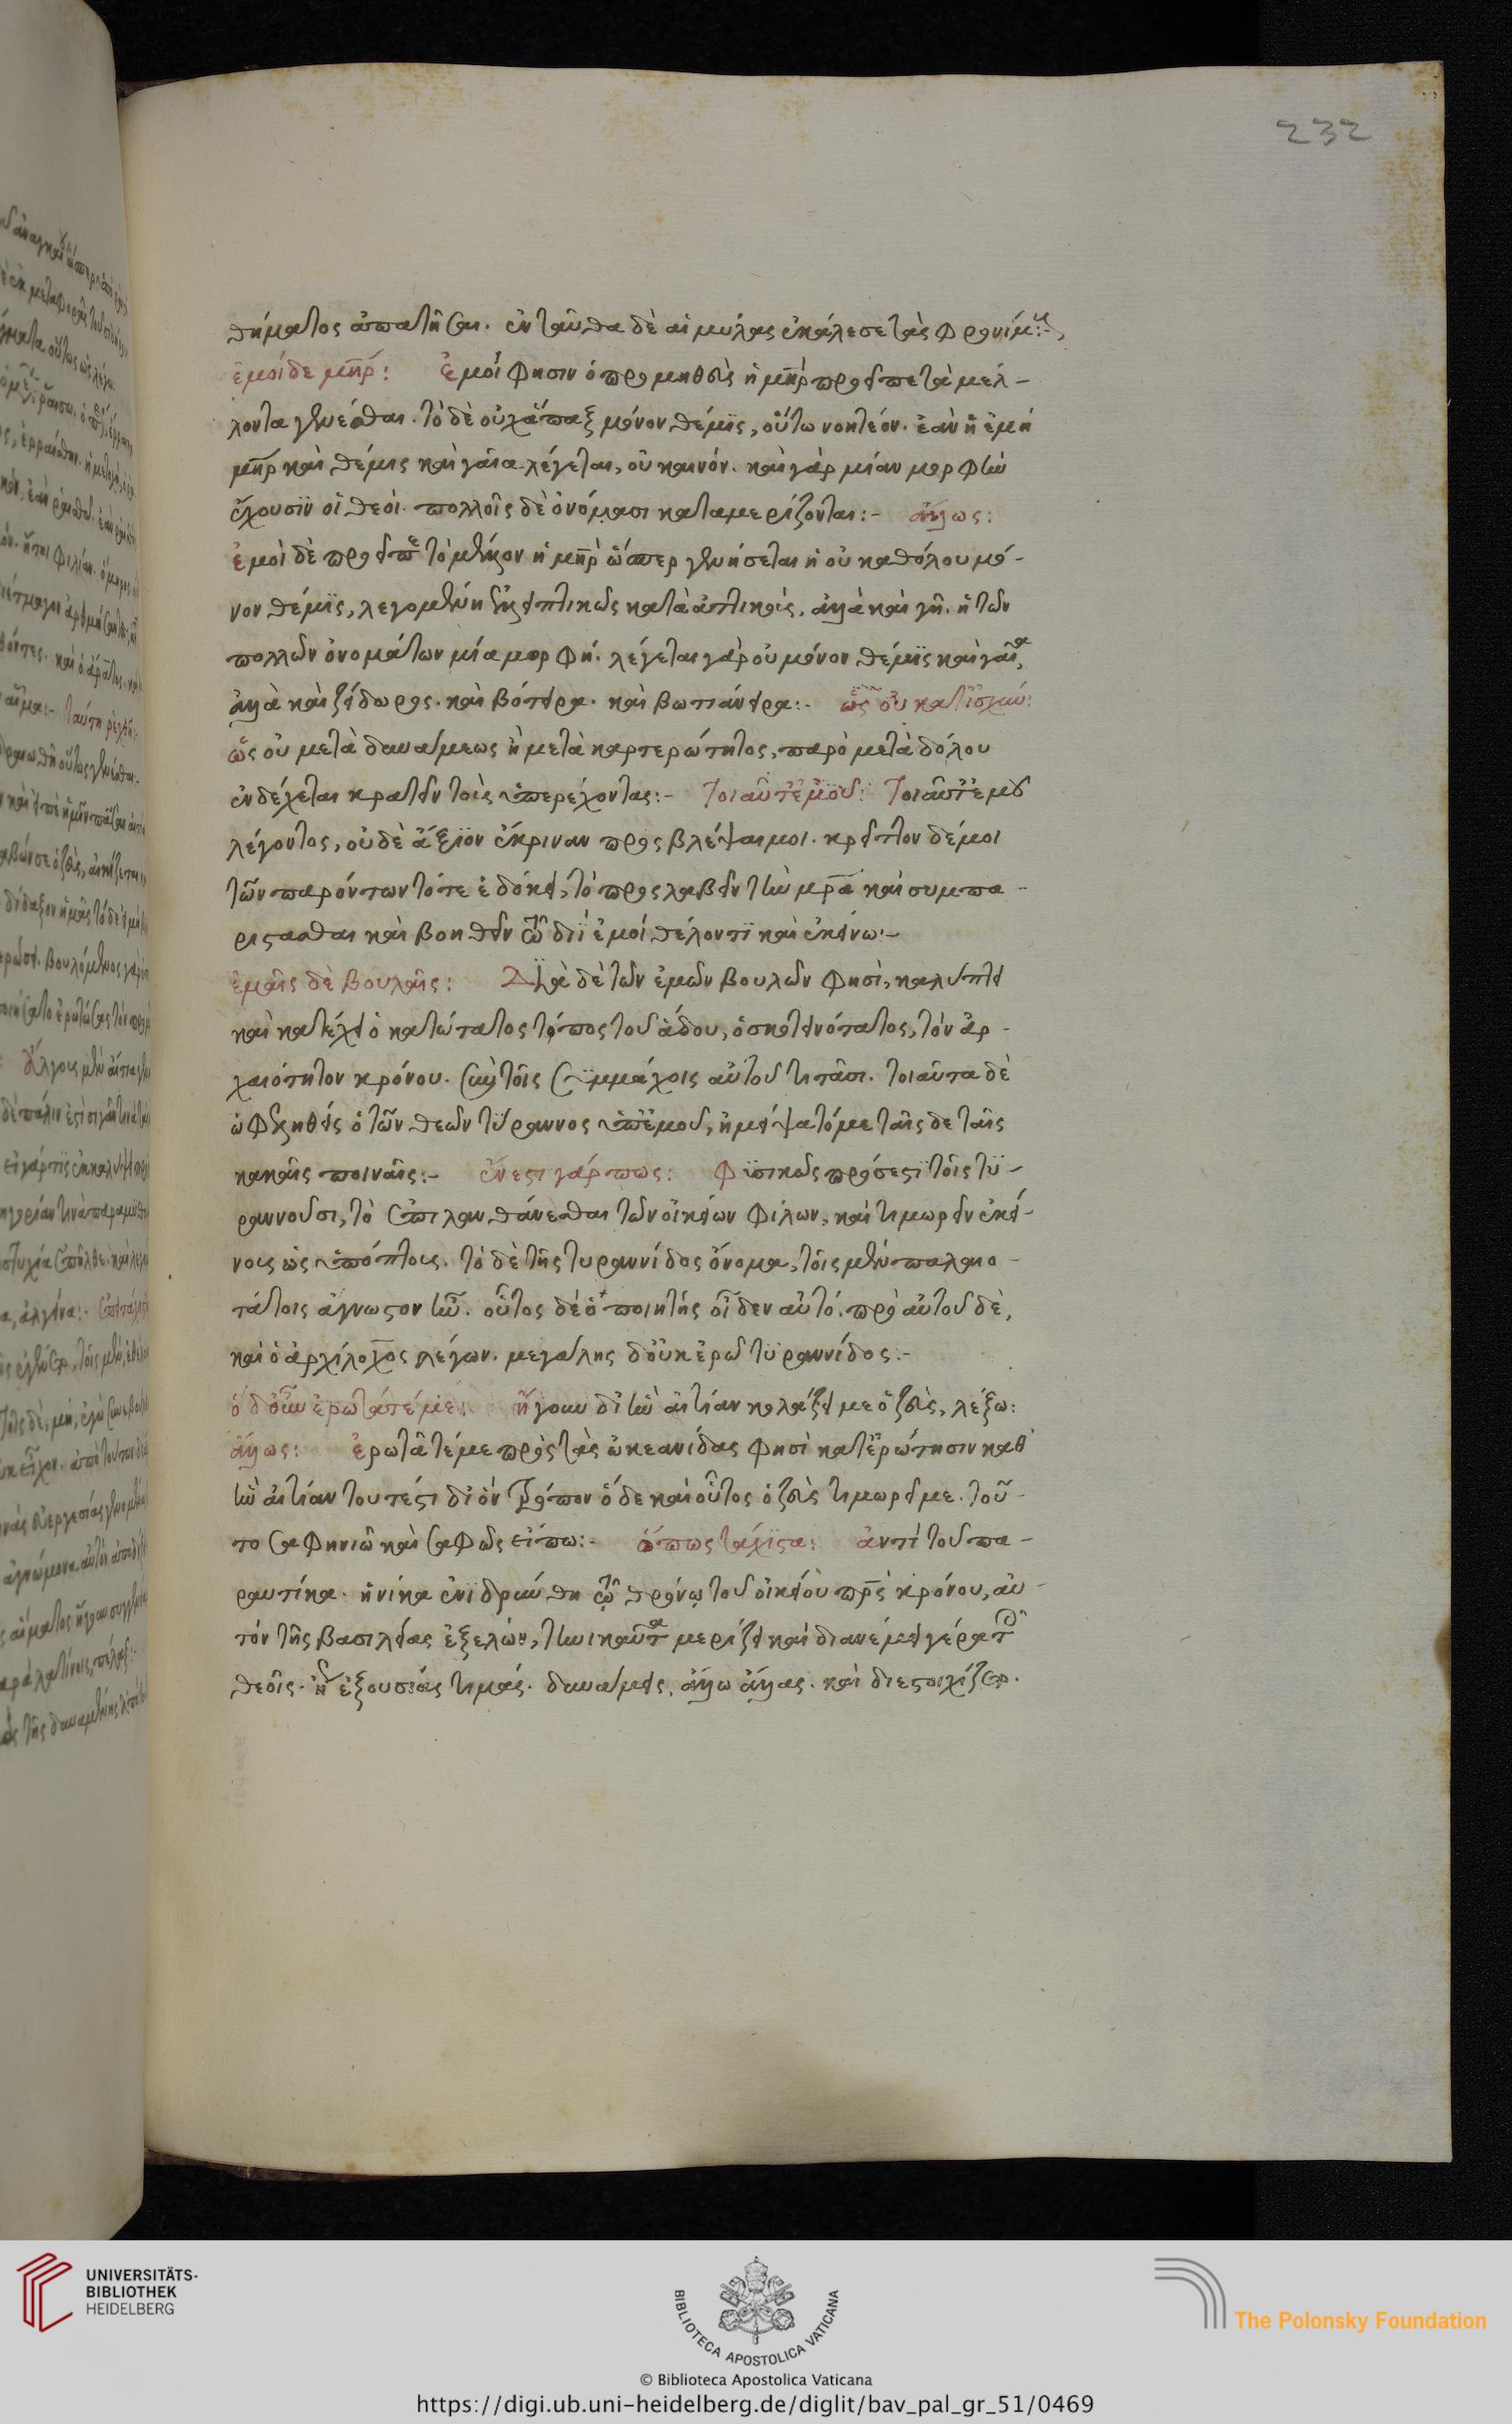 232
θήματος ἀπατῆσαι. ἐνταῦθα δὲ αἱμύλας ἐκάλεσε τὰς φρονίμ
ἐμοί δε μηρ: Ἐμοί φησιν ὁ προμηθεὺς ἡ μηρ προεῖπε τὰ μέλ-
λοντα γενέσθαι. τὸ δὲ οὐχ ἅπαξ μόνον θέμις, οὕτω νοητέον. ἐὰν ἡ ἐμὴ
μηρ καὶ θέμις καὶ γαῖα λέγεται, οὐ καινόν. καὶ γὰρ μίαν μορφὴν
ἔχουσιν οἱ θεοί. πολλοῖς δὲ ὀνόμασι καταμερίζονται:- ἄλλως:
ἐμοὶ δὲ προεῖπε τὸ μέλλον ἡ μηρ ὥσπερ γενήσεται ἡ οὐ καθόλου μό-
νον θέμις, λεγομένη ἀττικῶς, ἀλλὰ καὶ γῆ. ἡ τῶν
πολλῶν ὀνομάτων μία μορφή. λέγεται γὰρ οὐ μόνον θέμις καὶ γαῖα,
ἀλλὰ καὶ ζείδωρος. καὶ βότειρα. καὶ βωτιάνειρα:- ὡς οὐ κατισχὺν:
ὡς οὐ μετὰ δυνάμεως ἢ μετὰ καρτερότητος, παρὸ μετὰ δόλου
ἐνδέχεται κρατεῖν τοὺς ὑπερέχοντας:- τοιαῦτ ἐμοῦ: Τοιαῦτ ἐμοῦ
λέγοντος, οὐδὲ ἄξιον ἔκριναν προςβλέψαι μοι. κρεῖττον δέ μοι
τῶν παρόντων τότε ἐδόκει, τὸ προςλαβεῖν τὴν μρα καὶ συμπα-
ρίστασθαι καὶ βοηθεῖν τῷ διῒ ἐμοὶ θέλοντι καὶ ἐκείνω:-
ἐμαῖς δὲ βουλαῖς: Διὰ δὲ τῶν ἐμῶν βουλῶν φησὶ, καλύπτει
καὶ κατέχει ὁ κατώτατος τόπος τοῦ ἅδου, ὁ σκοτεινότατος, τὸν ἀρ-
χαιότητον κρόνου. σὺν τοῖς συμμάχοις αὐτοῦ τιτᾶσι. τοιαῦτα δὲ
ὠφεληθεὶς ὁ τῶν θεῶν τύραννος ὑπ ἐμοῦ, ἠμείψατό με ταῖςδε ταῖς
κακαῖς ποιναῖς:- ἔνεστι γάρ πως: Φυσικῶς πρόσεστι τοῖς τυ-
ραννοῦσι, τὸ ἐπιλανθάνεσθαι τῶν οἰκείων φίλων, καὶ τιμωρεῖν ἐκεί-
νους ὡς ὑπόπτους. τὸ δὲ τῆς τυραννίδος ὄνομα, τοῖς μὲν παλαιο-
τάτοις ἄγνωστον ἦν. οὗτος δὲ ὁ ποιητής οἶδεν αὐτό. πρὸ αὐτοῦ δὲ,
καὶ ὁ ἀρχίλοχος λέγων. μεγάλης δ οὐκ ἐρῶ τυραννίδος:-
ὁ δ οὖν ἐρωτᾶτέ με: ἤγουν δι ἣν αἰτίαν κολάζει με ὁ ζεὺς, λέξω:
ἄλλως: ἐρωτᾶτέ με πρὸς τὰς ὠκεανίδας φησὶ κατ ἐρώτησιν καθ
ἣν αἰτίαν τουτέστι δι ὃν τρόπον ὅδε καὶ οὗτος ὁ ζεὺς τιμωρεῖ με. τοῦ-
το σαφηνιῶ καὶ σαφῶς εἴπω:- ὅπως τάχιστα: ἀντὶ τοῦ πα-
ραυτίκα. ἡνίκα ἐνιδρύνθη τῷ θρόνῳ τοῦ οἰκείου πρς κρόνου, αὐ-
τόν τῆς βασιλείας ἐξελών, τηνικαῦτα μερίζει καὶ διανέμει γέρα τοῖς
θεοῖς. ἐξουσίας τιμάς. δυνάμεις, ἄλλω ἄλλας. καὶ διεστοιχίζετο.
UNIVERSITÄTS-
BIBLIOTHEK
HEIDELBERG
BIBLIOTECA APOSTOLICA VATICANA
The Polonsky Foundation
© Biblioteca Apostolica Vaticana
https://digi.ub.uni-heidelberg.de/diglit/bav_pal_gr_51/0469